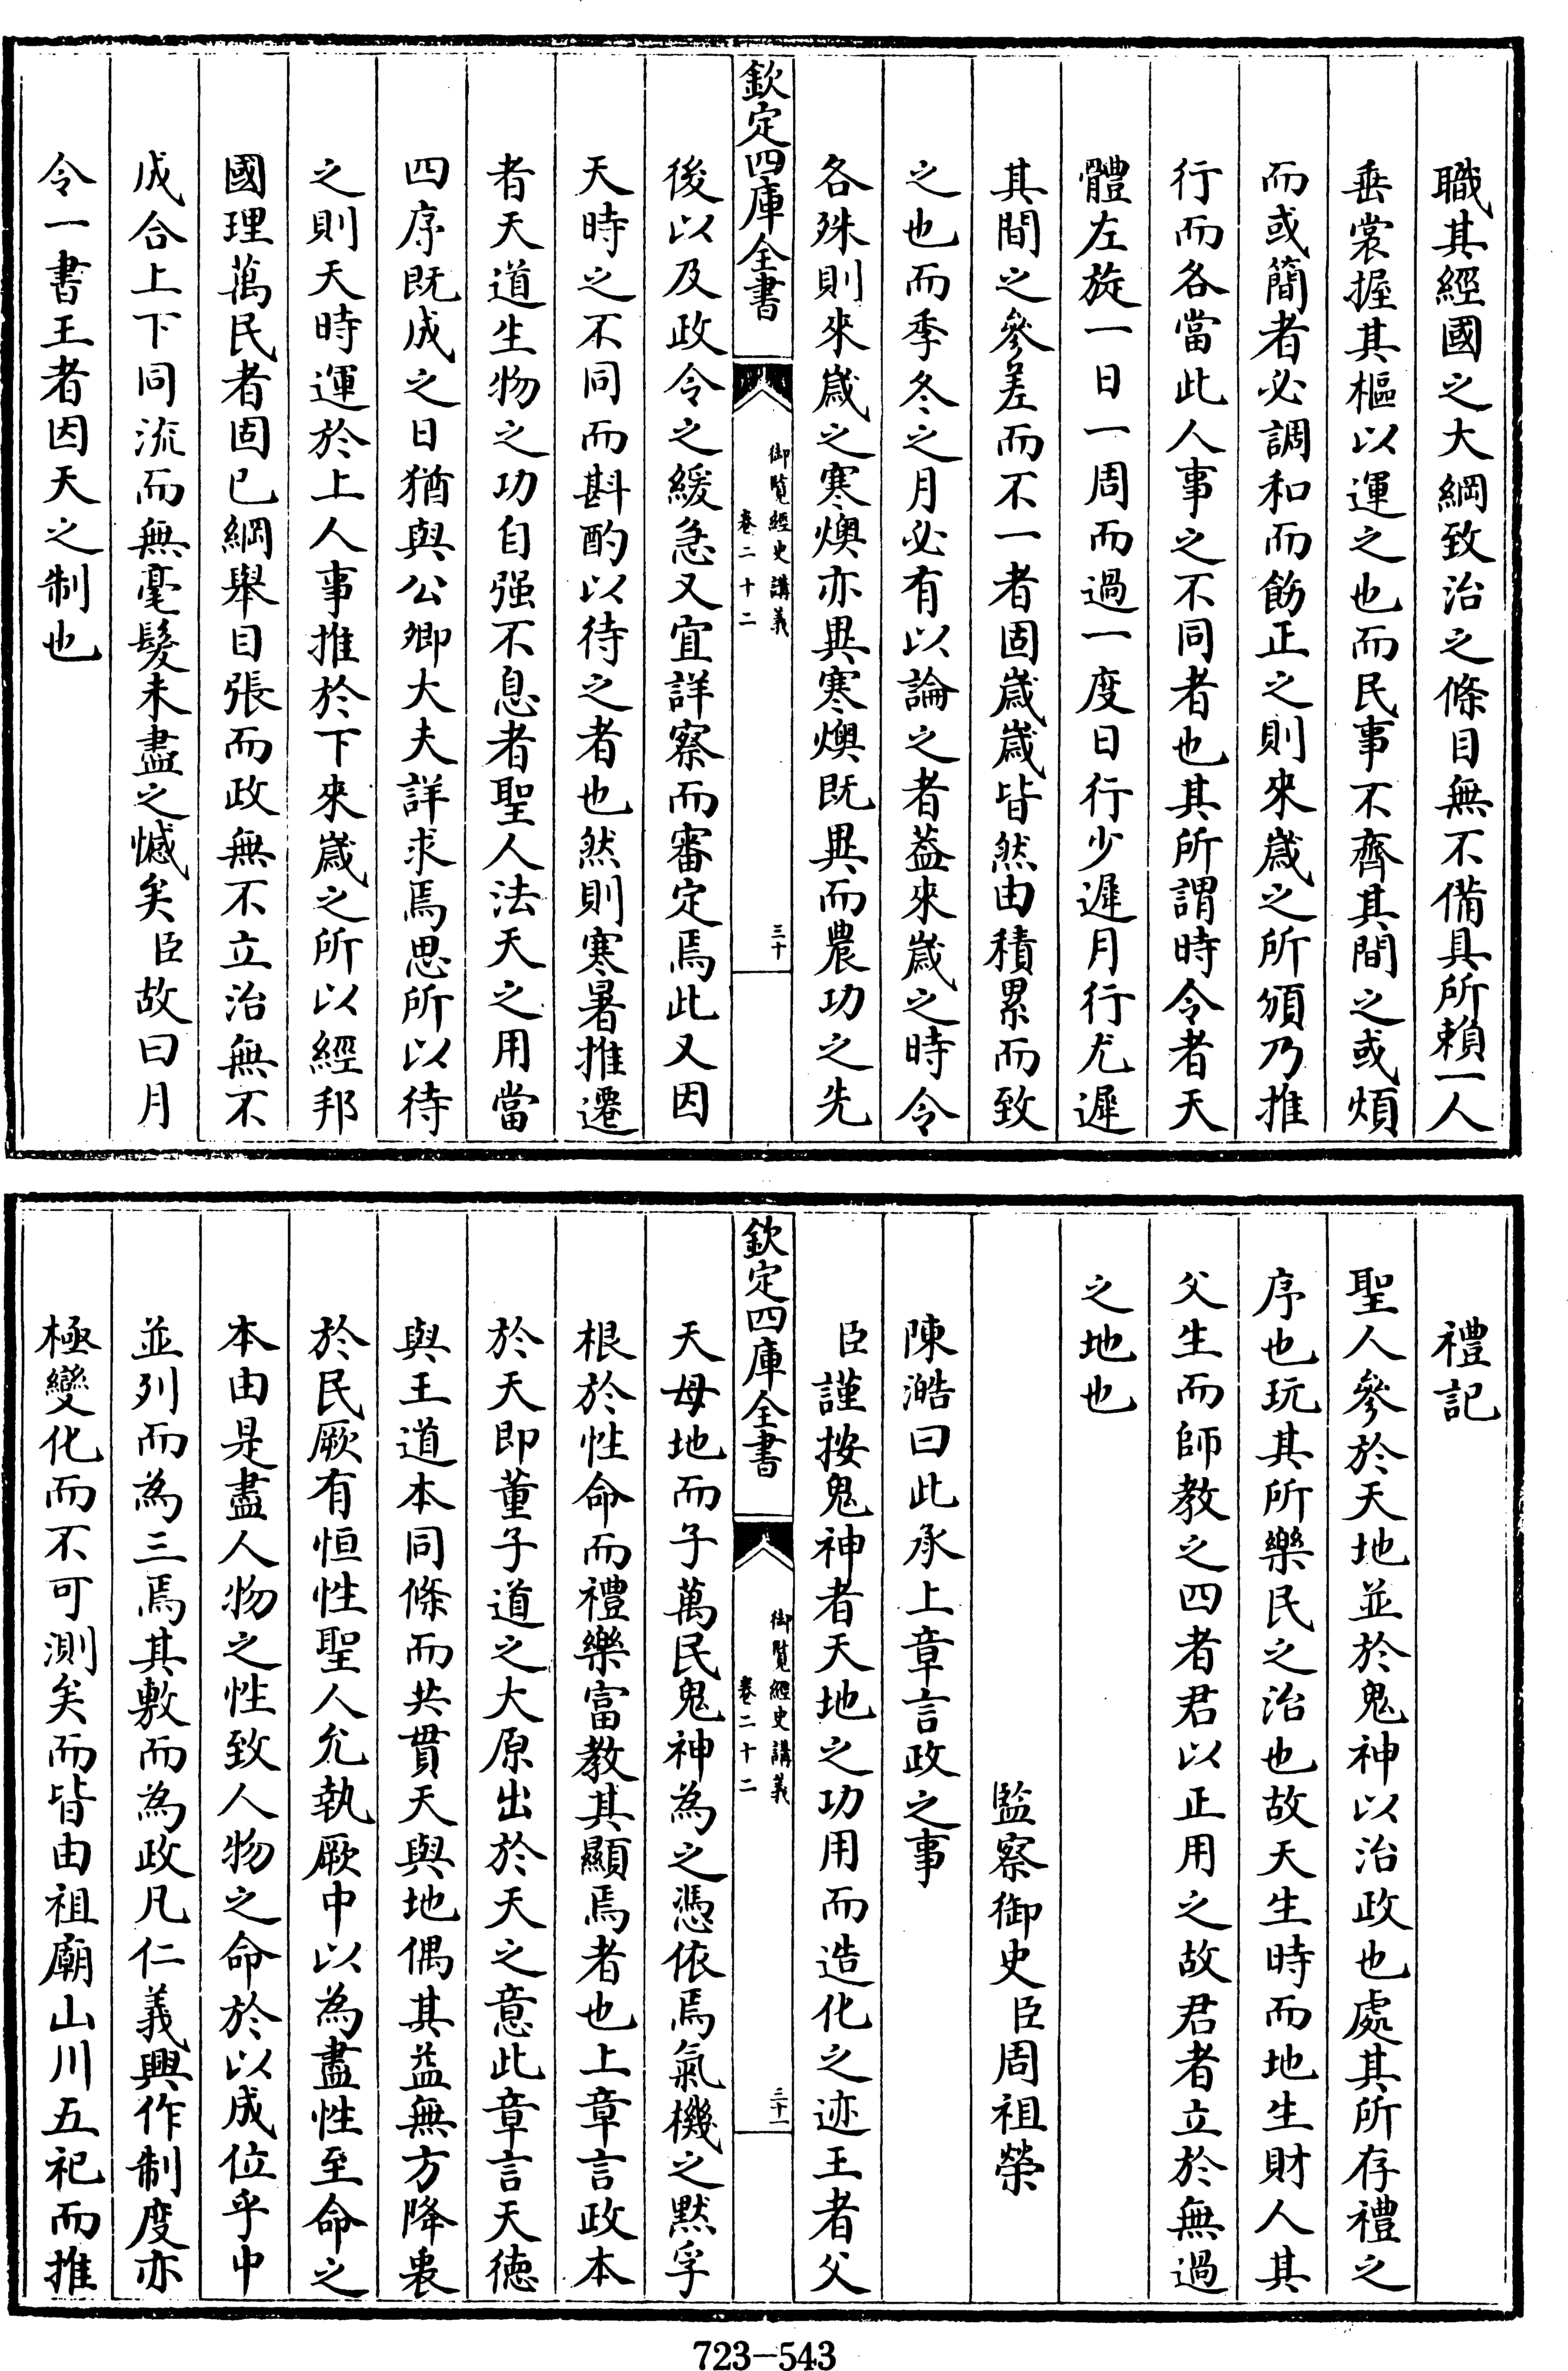 職其經國之大綱致治之條目無不備具所賴一人
垂裳握其樞以運之也而民事不齊其間之或煩
而或簡者必調和而飭正之則來歲之所頒乃推
行而各當此人事之不同者也其所謂時令者天
體左旋一日一周而過一度日行少遲月行尤遲
其間之參差而不一者固歲歲皆然由積累而致
之也而季冬之月必有以論之者蓋來歲之時令
各殊則來歲之寒燠亦異寒燠既異而農功之先
欽定四庫全書
御覽經史講義
卷二十二
三十
後以及政令之緩急又宜詳察而審定焉此又因
天時之不同而斟酌以待之者也然則寒暑推遷
者天道生物之功自强不息者聖人法天之用當
四序既成之日猶與公卿大夫詳求焉思所以待
之則天時運於上人事推於下來歲之所以經邦
國理萬民者固已綱舉目張而政無不立治無不
成合上下同流而無毫髮未盡之憾矣臣故曰月
令一書王者因天之制也
禮記
聖人參於天地並於鬼神以治政也處其所存禮之
序也玩其所樂民之治也故天生時而地生財人其
父生而師教之四者君以正用之故君者立於無過
之地也
監察御史臣周祖榮
陳澔曰此承上章言政之事
臣謹按鬼神者天地之功用而造化之迹王者父
欽定四庫全書
御覽經史講義
卷二十二
三十一
天母地而子萬民鬼神為之憑依焉氣機之默孚
根於性命而禮樂富教其顯焉者也上章言政本
於天即董子道之大原出於天之意此章言天德
與王道本同條而共貫天與地偶其益無方降衷
於民厥有恒性聖人允執厥中以為盡性至命之
本由是盡人物之性致人物之命於以成位乎中
並列而為三焉其敷而為政凡仁義興作制度亦
極變化而不可測矣而皆由祖廟山川五祀而推
723-543